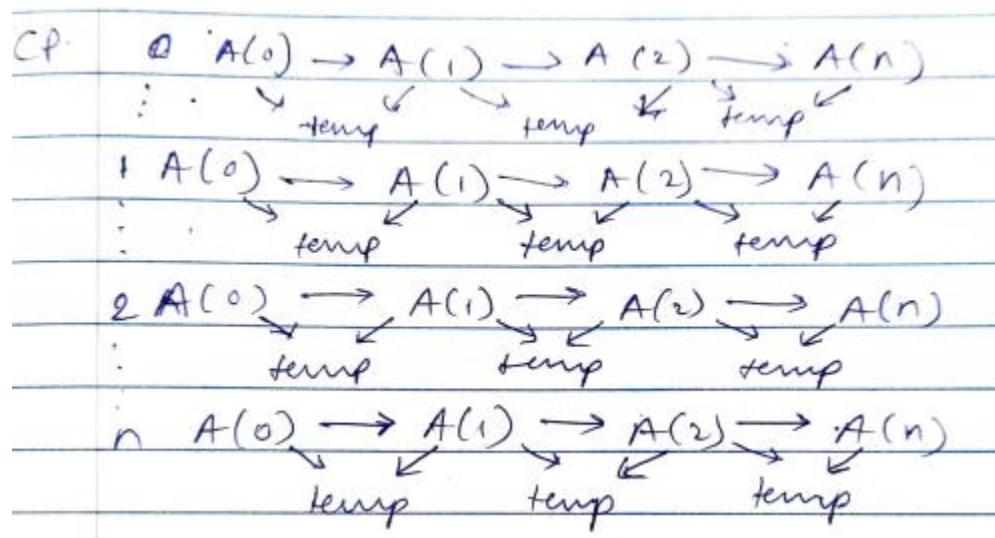 CP. 0 A(0) → A(1) → A(2) → A(n)
temp temp temp
1 A(0) → A(1) → A(2) → A(n)
temp temp temp
2 A(0) → A(1) → A(2) → A(n)
temp temp temp
n A(0) → A(1) → A(2) → A(n)
temp temp temp